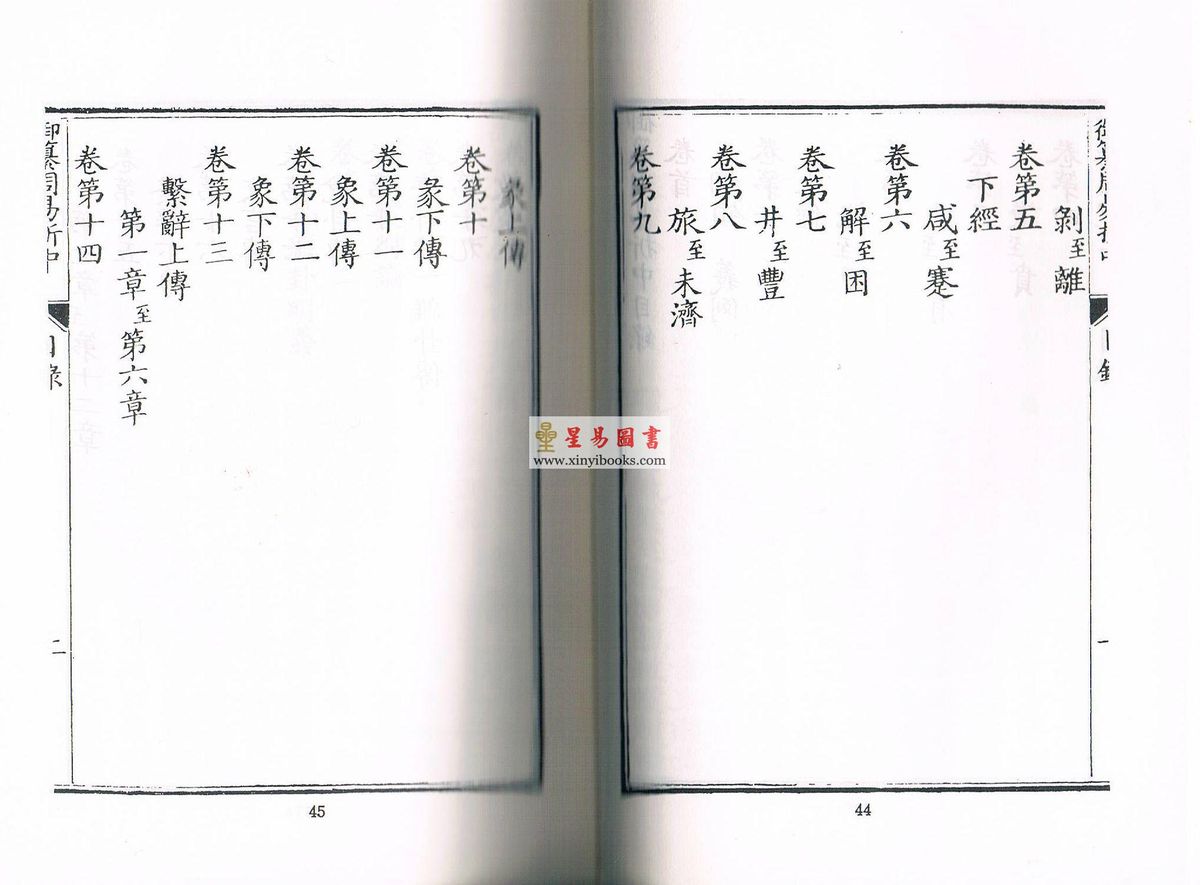 剝至離
卷第五
下經
咸至蹇
卷第六
解至困
卷第七
井至豐
卷第八
旅至未濟
卷第九
彖上傳
卷第十
彖下傳
卷第十一
象上傳
卷第十二
象下傳
卷第十三
繫辭上傳
第一章至第六章
卷第十四
御纂周易折中
目錄
一
二
44
45
星易圖書
www.xinyibooks.com